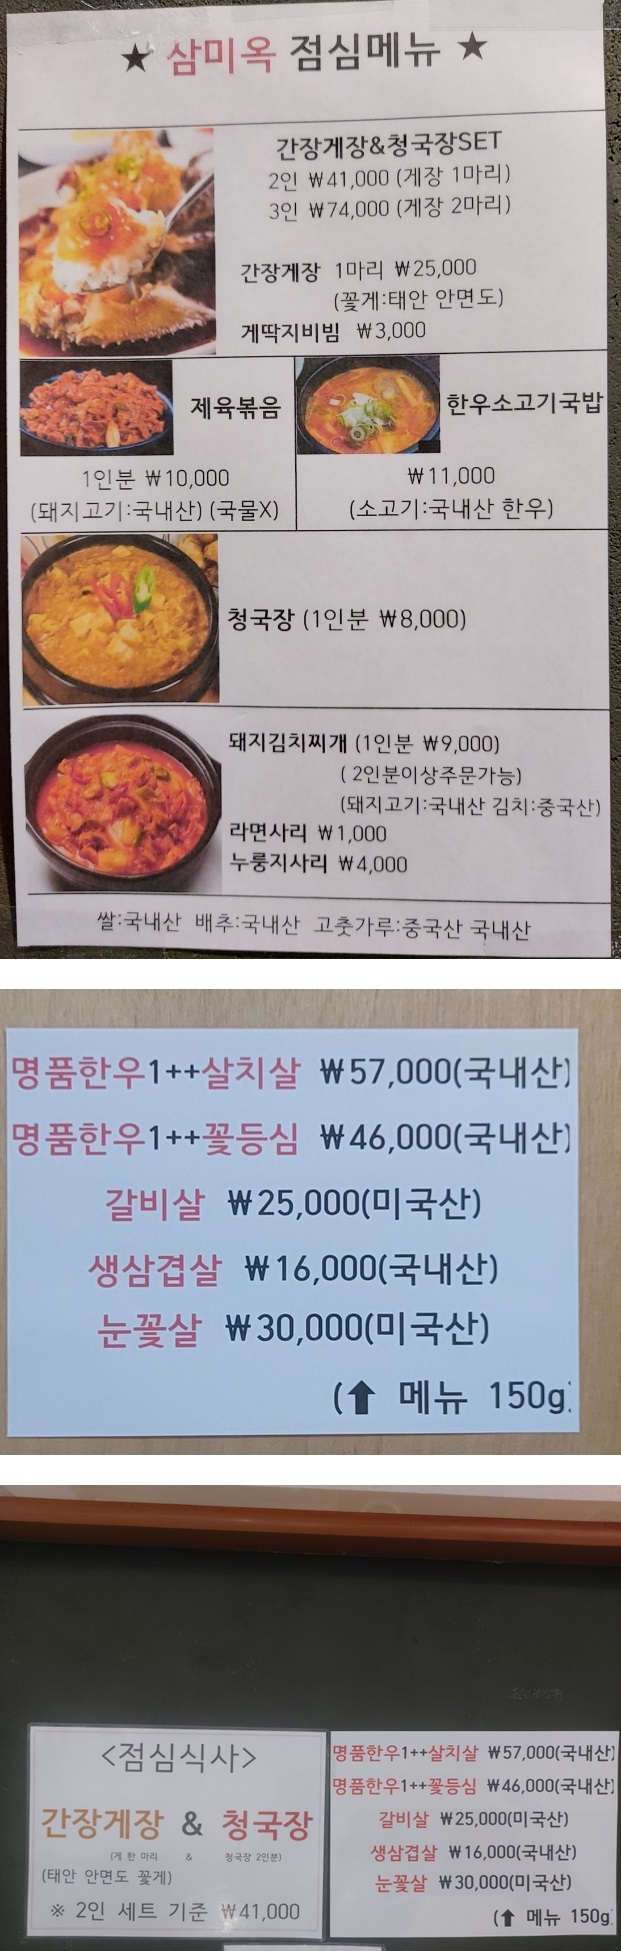 ★ 삼미옥 점심메뉴 ★
간장게장&청국장SET
2인 ₩41,000 (게장 1마리)
3인 ₩74,000 (게장 2마리)
간장게장 1마리 ₩25,000
(꽃게:태안 안면도)
게딱지비빔 ₩3,000
제육볶음
1인분 ₩10,000
(돼지고기:국내산) (국물X)
한우소고기국밥
₩11,000
(소고기:국내산 한우)
청국장 (1인분 ₩8,000)
돼지김치찌개 (1인분 ₩9,000)
( 2인분이상주문가능)
(돼지고기:국내산 김치:중국산)
라면사리 ₩1,000
누룽지사리 ₩4,000
쌀:국내산 배추:국내산 고춧가루:중국산 국내산
명품한우1++살치살 ₩57,000(국내산)
명품한우1++꽃등심 ₩46,000(국내산)
갈비살 ₩25,000(미국산)
생삼겹살 ₩16,000(국내산)
눈꽃살 ₩30,000(미국산)
(⬆ 메뉴 150g)
<점심식사>
간장게장 & 청국장
(게 한 마리 & 청국장 2인분)
(태안 안면도 꽃게)
※ 2인 세트 기준 ₩41,000
명품한우1++살치살 ₩57,000(국내산)
명품한우1++꽃등심 ₩46,000(국내산)
갈비살 ₩25,000(미국산)
생삼겹살 ₩16,000(국내산)
눈꽃살 ₩30,000(미국산)
(⬆ 메뉴 150g)